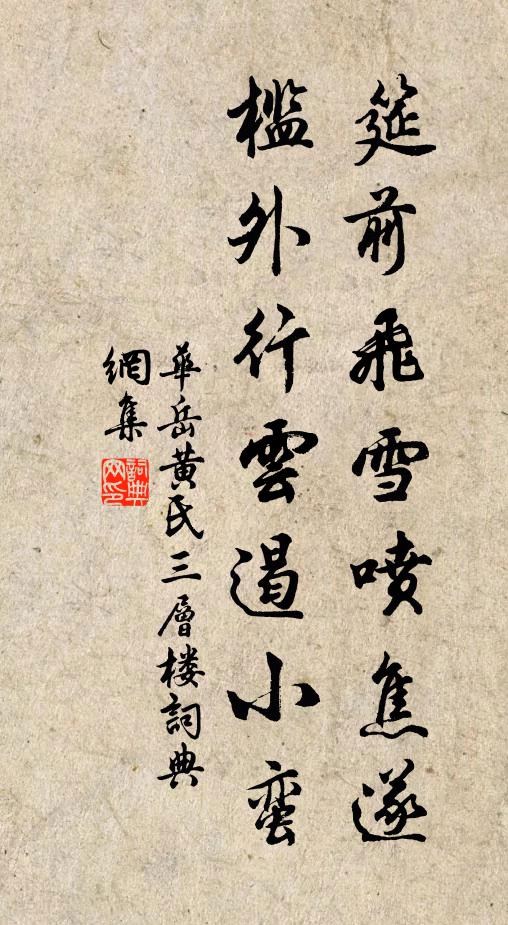 筵前飛雪噴焦遂
檻外行雲遏小蛮
華岳黄氏三層楼詞典
網集
詞典网印